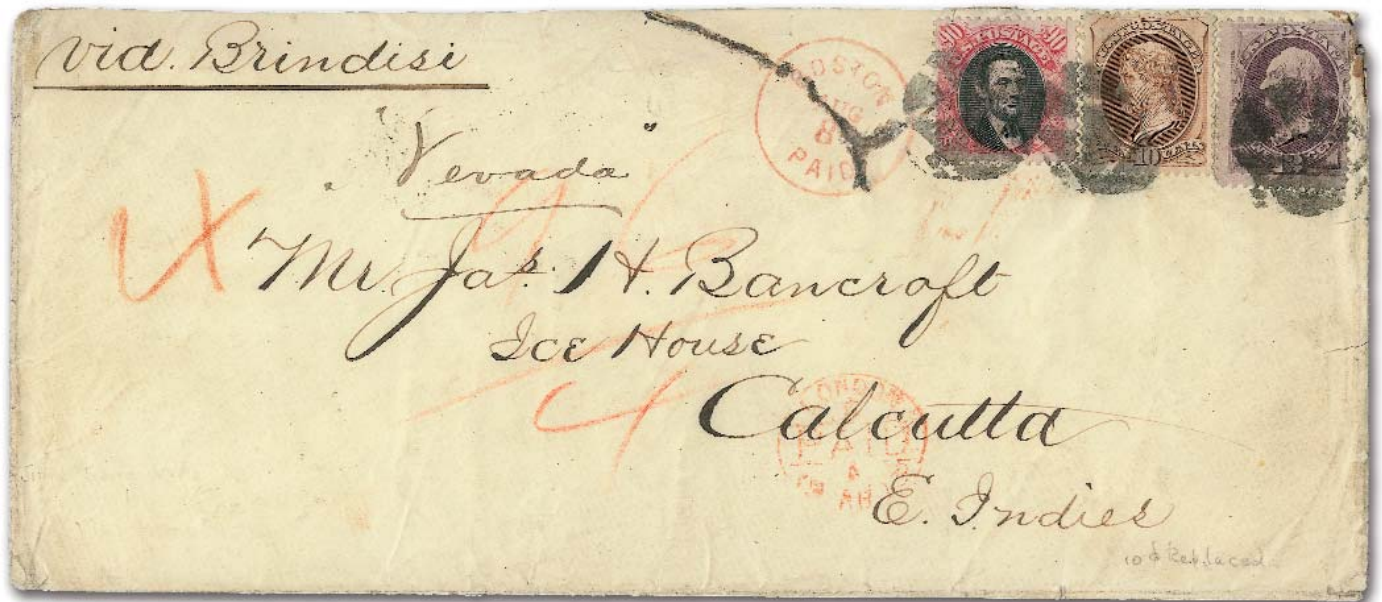 via. Brindisi
"Nevada"
Mr. Jas. H. Bancroft
Ice House
Calcutta
E. Indies
BOSTON
AUG
8
PAID
90 90
10
LONDON
PAID
4
10d Replaced